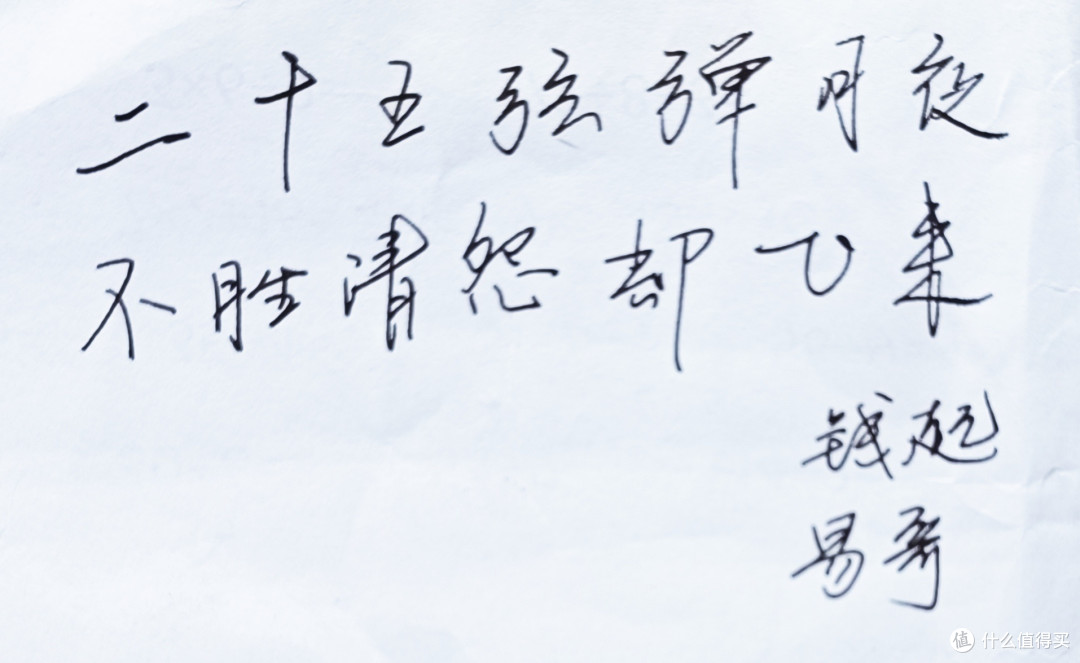 二十五弦弹月夜
不胜清怨却飞来
钱起
易哥
值 什么值得买